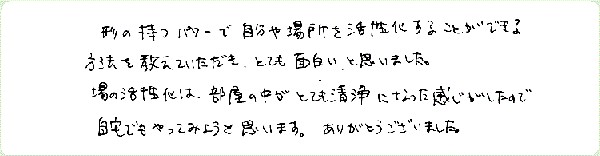 形の持つパワーで自分や場所を活性化することができる
方法を教えていただき、とても面白いと思いました。
場の活性化は、部屋の中がとても清浄になった感じがしたので
自宅でもやってみようと思います。ありがとうございました。